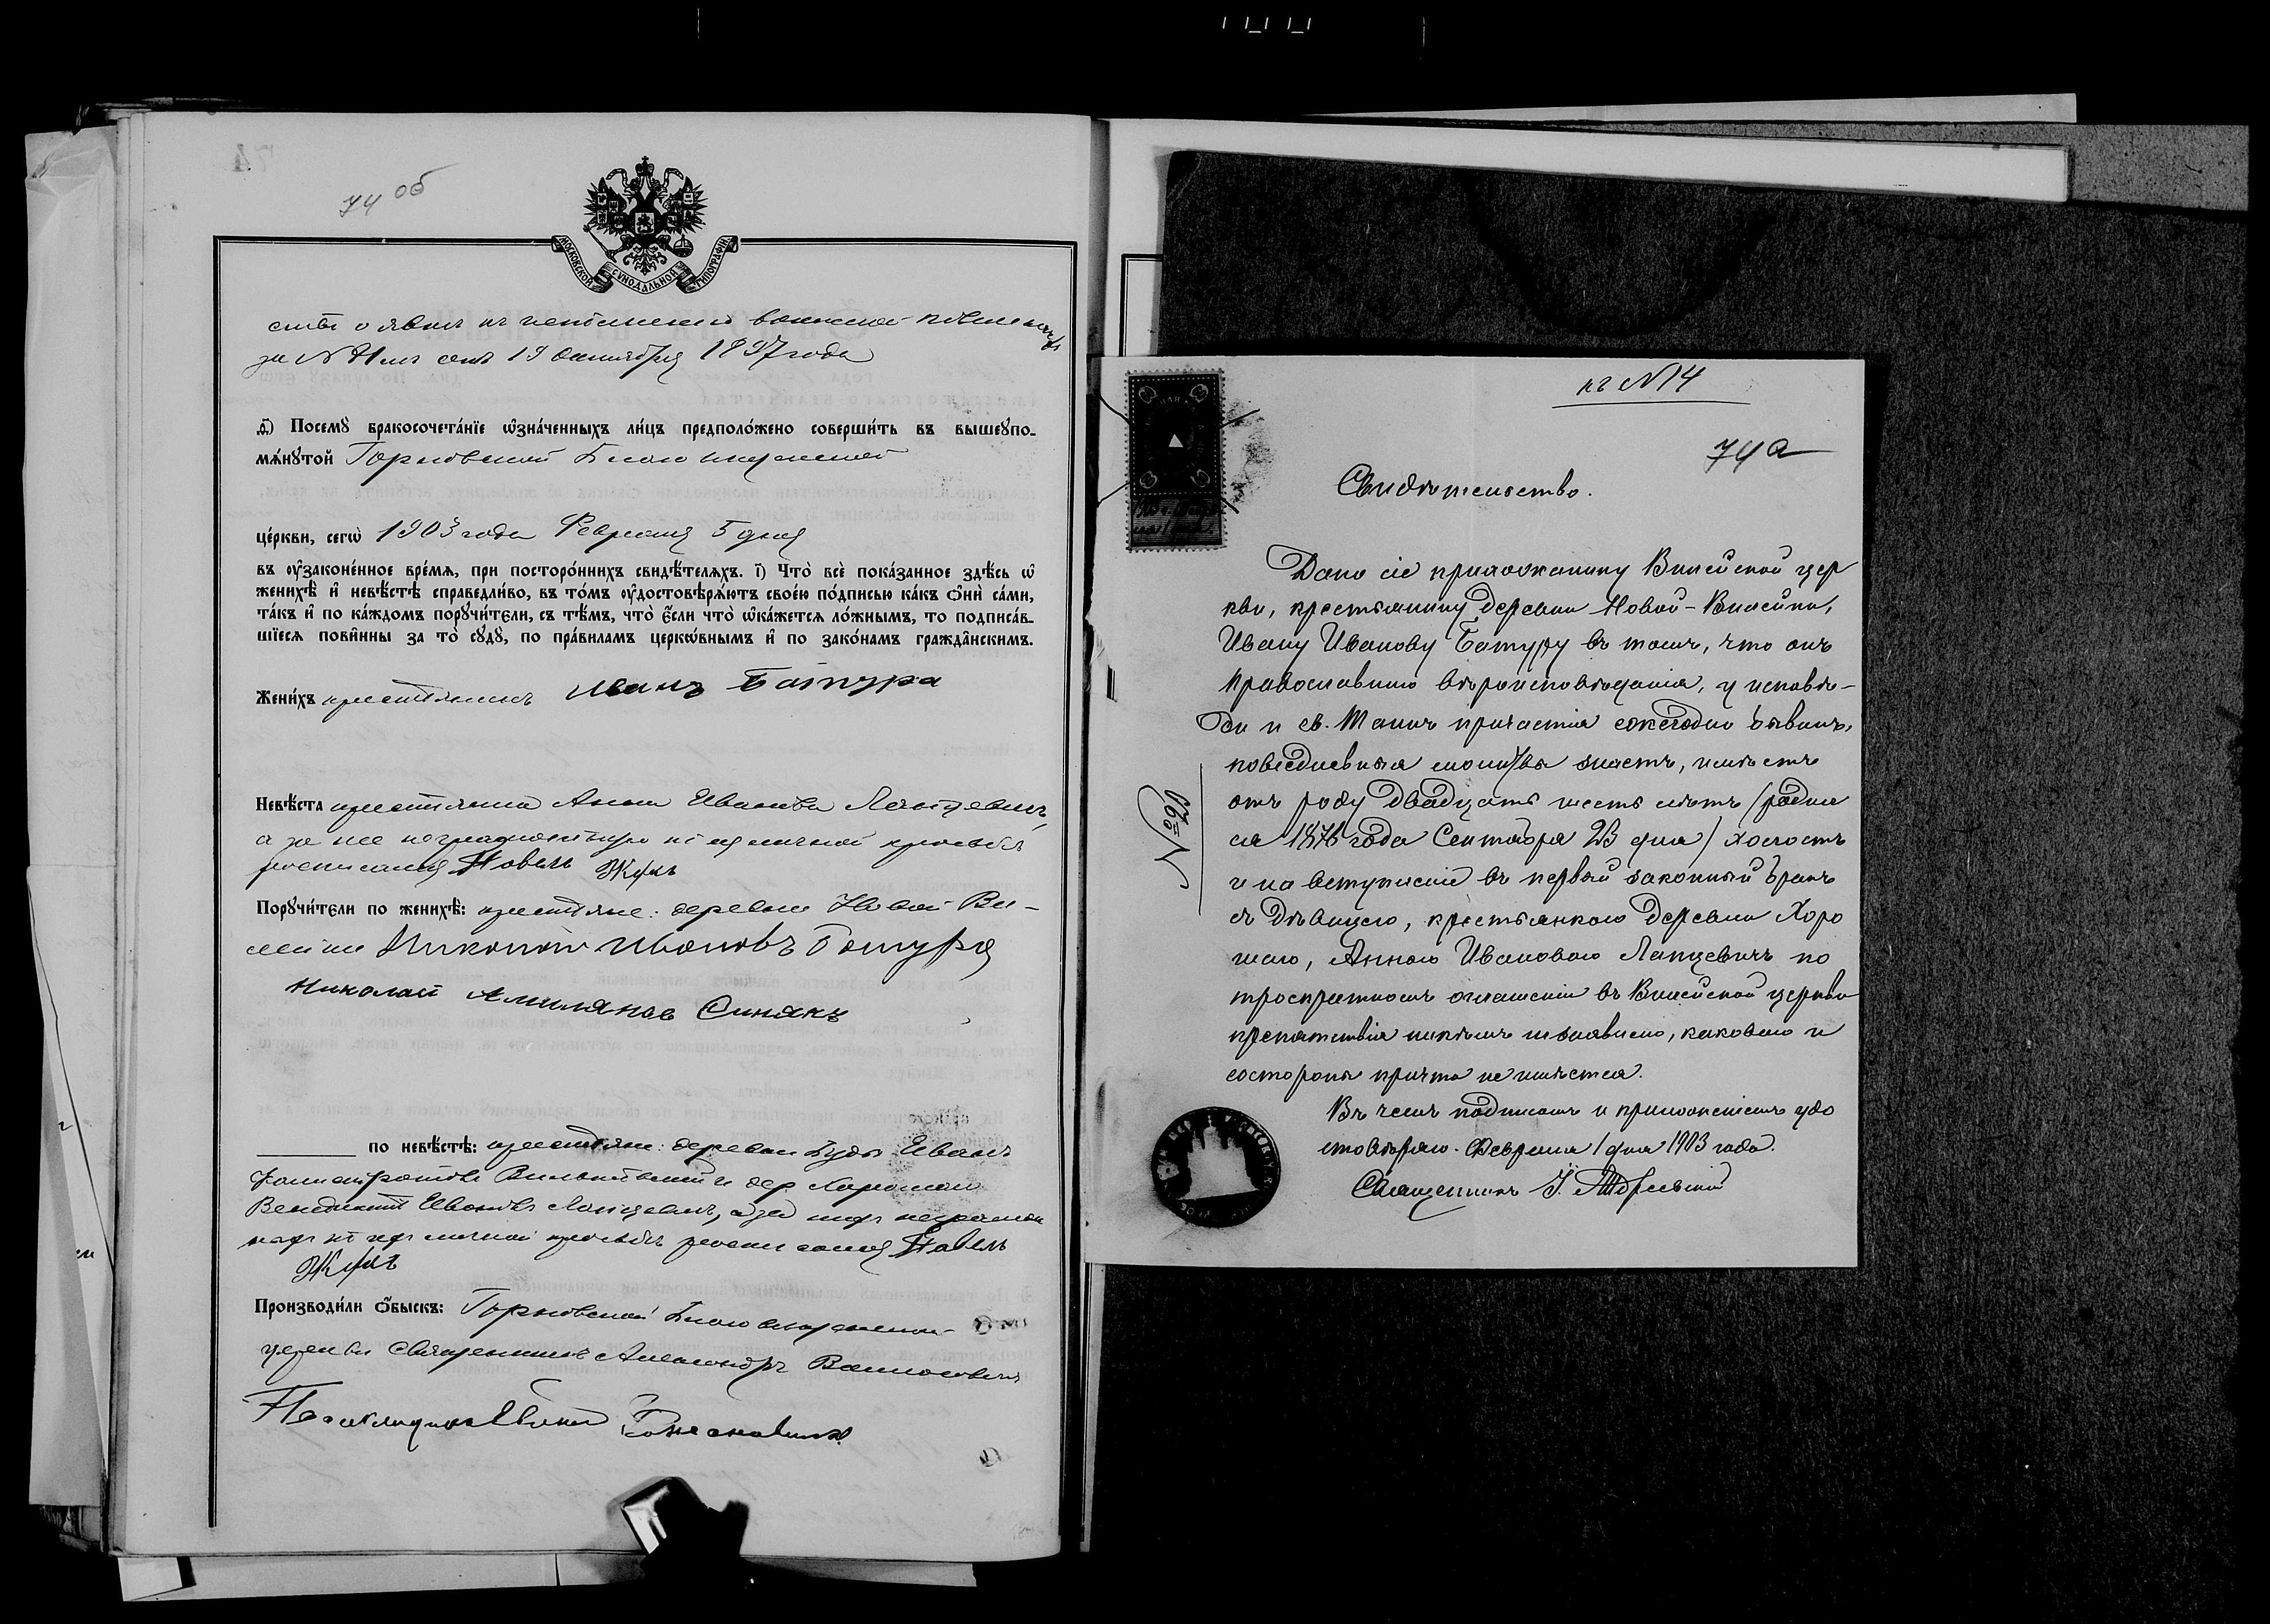 74 об
МОСКОВСКОЙ СУНОДАЛЬНОЙ ТИПОГРАФІИ
о явкѣ къ исполненію воинской повинности
за № отъ 19 Октября 1897 года
ѳ҃) Посемꙋ бракосочета́нїе ѡ҆зна́ченныхъ ли́цъ предполо́жено соверши́ть въ вышеꙋпо-
мѧ́нꙋтой Горковской Благовѣщенской
це́ркви, сегѡ̀ 1903 года Февраля 5 дня
въ ᲂу҆зако́ненное вре́мѧ, при посторо́ннихъ свидѣ́телѧхъ. і҃) Что̀ всѐ пока́занное здѣ́сь ѡ҆
женихѣ̀ и҆ невѣ́стѣ справедли́во, въ то́мъ ᲂу҆достовѣрѧ́ютъ свое́ю по́дписью ка́къ ѻ҆нѝ са́ми,
та́къ и҆ по ка́ждомъ порꙋчи́тели, съ тѣ́мъ, что̀ є҆́сли что̀ ѡ҆ка́жетсѧ ло́жнымъ, то подписа́в-
шїесѧ пови́нны за то̀ сꙋдꙋ̀, по пра́виламъ церко́внымъ и҆ по зако́намъ гражда́нскимъ.
Жени́хъ крестьянинъ Иванъ Батура
Невѣ́ста крестьянка Анна Иванова Лапцевичъ,
а за нее неграмотную по ея личной просьбѣ
росписался Павелъ Жукъ
Порꙋчи́тели по женихѣ̀: крестьяне: деревни Новой Ви-
лейки Никонъ Ивановъ Батура
Николай Амиляновъ Синякъ
по невѣ́стѣ: крестьяне: деревни Буды Иванъ
и дер Хорошаго
Венедиктъ Ивановъ Лапцевичъ, а за нихъ неграмот
ныхъ по ихъ личной просьбѣ росписался Павелъ
Жукъ
Производи́ли ѻ҆́быскъ: Горковской Благовѣщенской
церкви Священникъ Александръ
Псаломщикъ
къ № 14
74 а
Свидѣтельство.
Дано сіе прихожанину Вилейской цер
кви, крестьянину деревни Новой-Вилейки,
Ивану Иванову Батуру въ томъ, что онъ
Православнаго вѣроисповѣданія, у исповѣ-
ди и св. Таинъ причастія ежегодно бываетъ,
повседневныя молитвы знаетъ, имѣетъ
отъ роду двадцать шесть лѣтъ (родил
ся 1876 года Сентября 23 дня) холостъ
и на вступленіе въ первый законный бракъ
съ дѣвицею, крестьянкою деревни Хоро
шаго, Анною Ивановою Лапцевичъ по
троекратномъ оглашеніи въ Вилейской церкви
препятствія никѣмъ не заявлено, каковаго и
со стороны причта не имѣется.
Въ чемъ подписомъ и приложеніемъ удо
стовѣряю. Февраля 1 дня 1903 года.
Священникъ І.
№